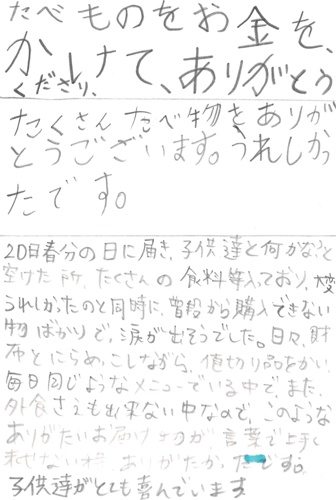 たべものをお金を、
かけて、ありがとう
くださり、
たくさんたべ物をありが
とうございます。うれしかっ
たです。
20日春分の日に届き、子供達と何かな?と
空けた所、たくさんの食料等入っており、大変
うれしかったのと同時に、普段から購入できない
物ばかりで、涙が出そうでした。日々、財
布とにらめっこしながら、値切り品をかい、
毎日同じようなメニューでいる中で、また、
外食さえも出来ない中なので、このような
ありがたいお届けものが言葉で上手く
表せない程、ありがたかったです。
子供達がとても喜んでいます